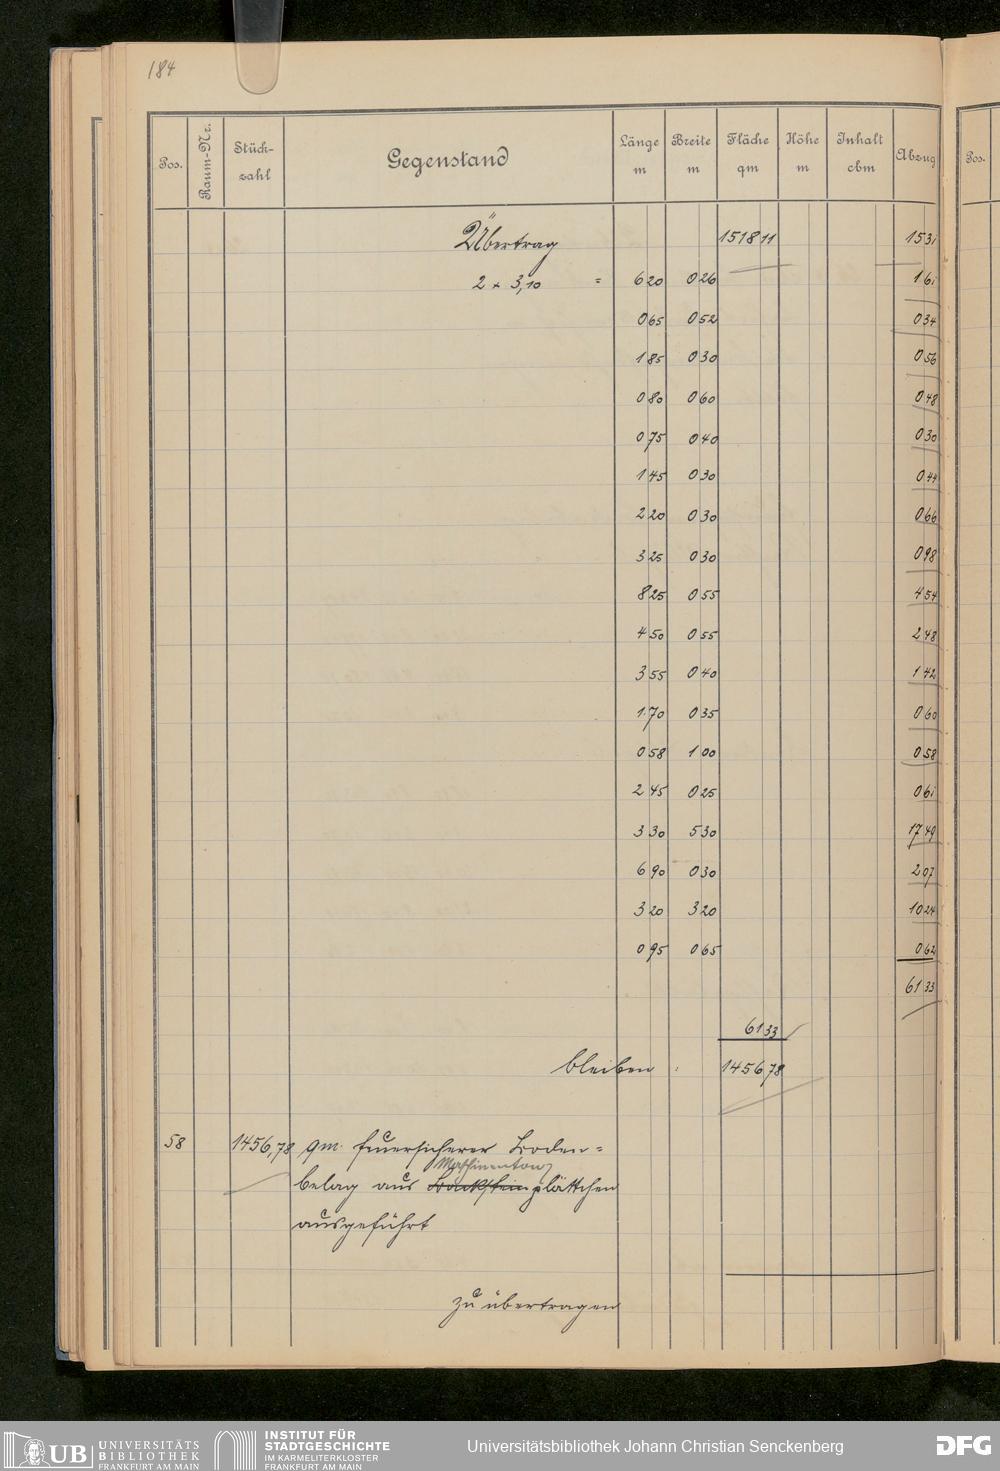 184
Pos. Raum-Nr. Stück-zahl Gegenstand Länge m Breite m Fläche qm Höhe m Inhalt cbm Abzug Pos.
Übertrag 1518 11 15 31
2 × 3,10 = 6 20 0 26 1 61
0 65 0 52 0 34
1 85 0 30 0 56
0 80 0 60 0 48
0 75 0 40 0 30
1 45 0 30 0 44
2 20 0 30 0 66
3 25 0 30 0 98
8 25 0 55 4 54
4 50 0 55 2 48
3 55 0 40 1 42
1 70 0 35 0 60
0 58 1 00 0 58
2 45 0 25 0 61
3 30 5 30 17 49
6 90 0 30 2 07
3 20 3 20 10 24
0 95 0 65 0 62
61 33
61 33
bleiben : 1456 78
58 1456,78 qm. feuersicherer Boden=
belag aus Backstein plättchen
ausgeführt
zu übertragen
UB UNIVERSITÄTS
BIBLIOTHEK
FRANKFURT AM MAIN
INSTITUT FÜR
STADTGESCHICHTE
IM KARMELITERKLOSTER
FRANKFURT AM MAIN
Universitätsbibliothek Johann Christian Senckenberg
DFG